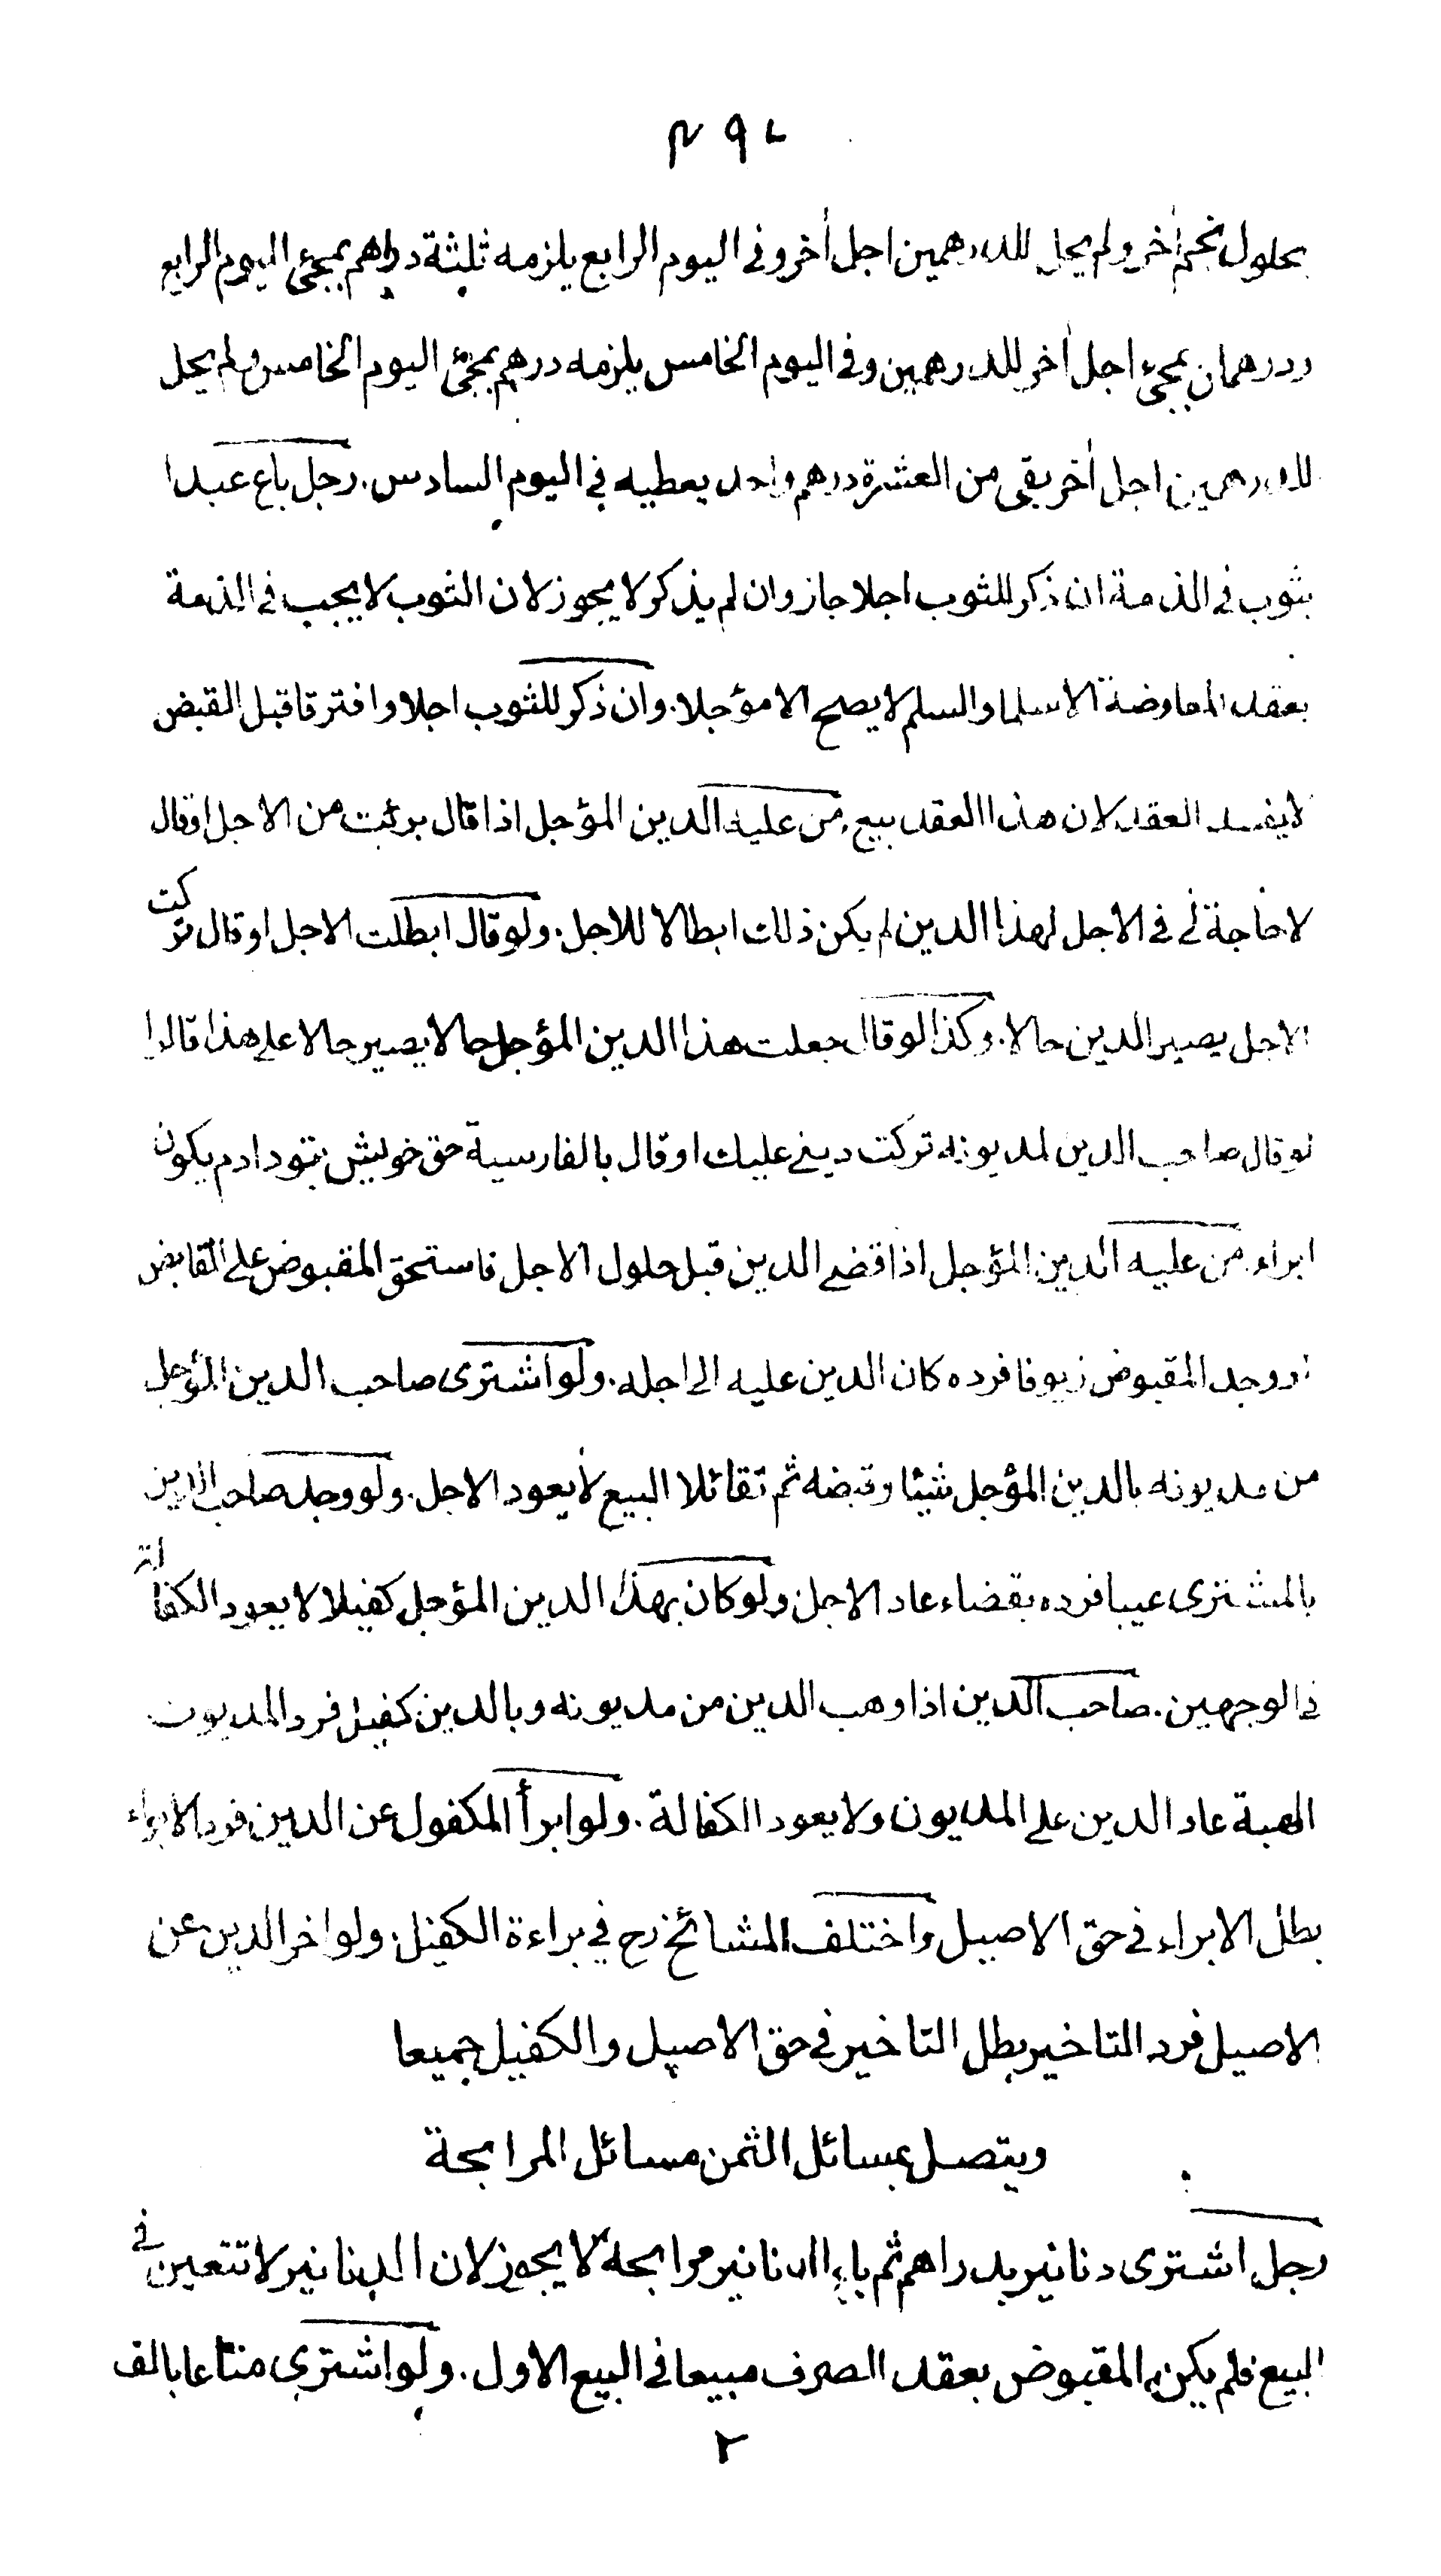 بحلول نجم أخر ولم يحل للدرهمين اجل أخر وفي اليوم الرابع يلزمه ثلثة دراهم بمجئ اليوم الرابع
ودرهمان بمجئ اجل أخر للدرهمين وفي اليوم الخامس يلزمه درهم بمجئ اليوم الخامس ولم يحل
للدرهمين اجل أخر بقي من العشرة درهم واحد يعطيه في اليوم السادس. رجل باع عبدا
بثوب في الذمة ان ذكر للثوب اجلا جاز وان لم يذكر لا يجوز لان الثوب لا يجب في الذمة
بعقد المعاوضة الا سلما والسلم لا يصح الا مؤجلا. وان ذكر للثوب اجلا وافترقا قبل القبض
لا يفسد العقد لان هذا العقد بيع. من عليه الدين المؤجل اذا قال برئت من الاجل او قال
لا حاجة لي في الاجل لهذا الدين لم يكن ذلك ابطالا للاجل. ولو قال ابطلت الاجل او قال تركت
الاجل يصير الدين حالا. وكذا لو قال جعلت هذا الدين المؤجل حالا يصير حالا على هذا قالوا
لو قال صاحب الدين لمديونه تركت ديني عليك او قال بالفارسية حق خويش بتو دادم يكون
ابراء. من عليه الدين المؤجل اذا قضى الدين قبل حلول الاجل فاستحق المقبوض على القابض
او وجد المقبوض زيوفا فرده كان الدين عليه الى اجله. ولو اشترى صاحب الدين المؤجل
من مديونه بالدين المؤجل شيئا وقبضه ثم تقائلا البيع لا يعود الاجل. ولو وجد صاحب الدين
بالمشترى عيبا فرده بقضاء عاد الاجل ولو كان بهذا الدين المؤجل كفيلا لا يعود الكفالة
في الوجهين. صاحب الدين اذا وهب الدين من مديونه وبالدين كفيل فرد المديون
الهبة عاد الدين على المديون ولا يعود الكفالة. ولو ابرأ المكفول عن الدين فرد الابراء
بطل الابراء في حق الاصيل واختلف المشائخ رح في براءة الكفيل. ولو اخر الدين عن
الاصيل فرد التاخير بطل التاخير في حق الاصيل والكفيل جميعا
ويتصل بمسائل الثمن مسائل المرابحة
رجل اشترى دنانير بدراهم ثم باع الدنانير مرابحة لا يجوز لان الدنانير لا تتعين في
البيع فلم يكن المقبوض بعقد الصرف مبيعا في البيع الاول. ولو اشترى متاعا بالف
٢